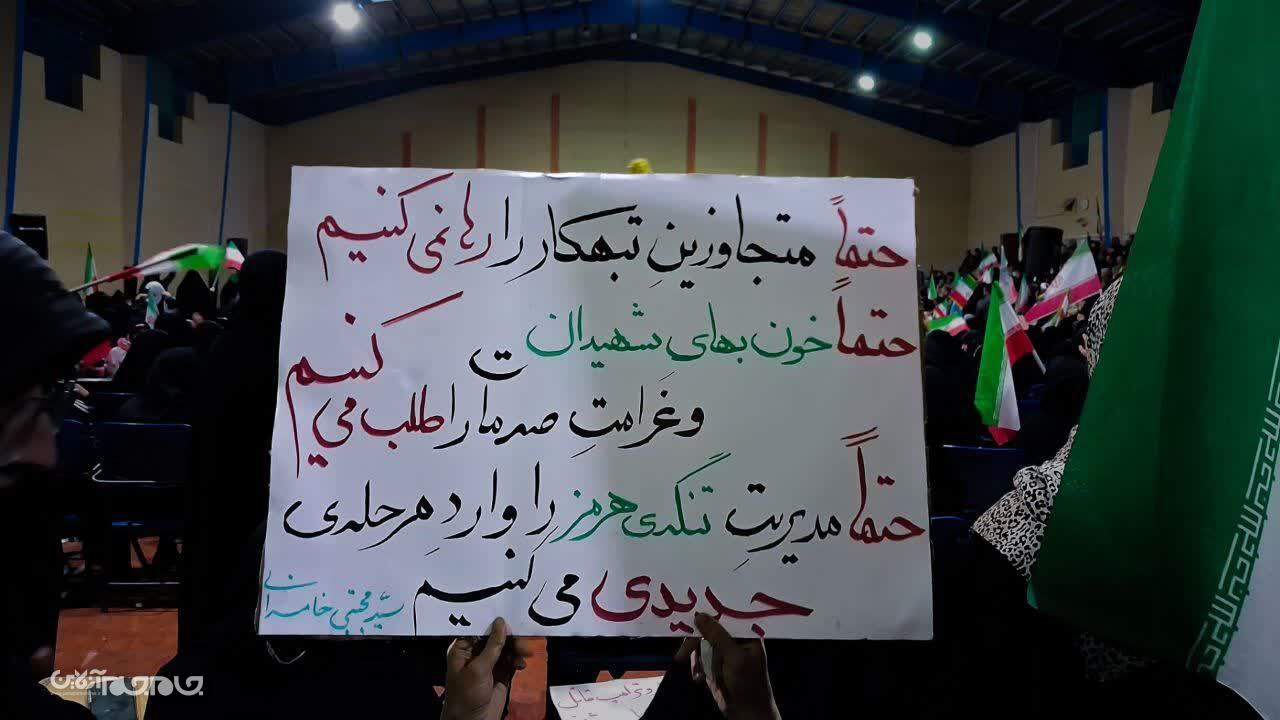 حتماً متجاوزینِ تبهکار را رها نمی کنیم
حتماً خون بهای شهیدان
وغَرامتِ صدمات را طلب می کنیم
حتماً مدیریتِ تنگه‌ی هرمز را واردِ مرحله‌ی
جدیدی می کنیم
سیّد مجتبی خامنه‌ای
جام جم آنلاین